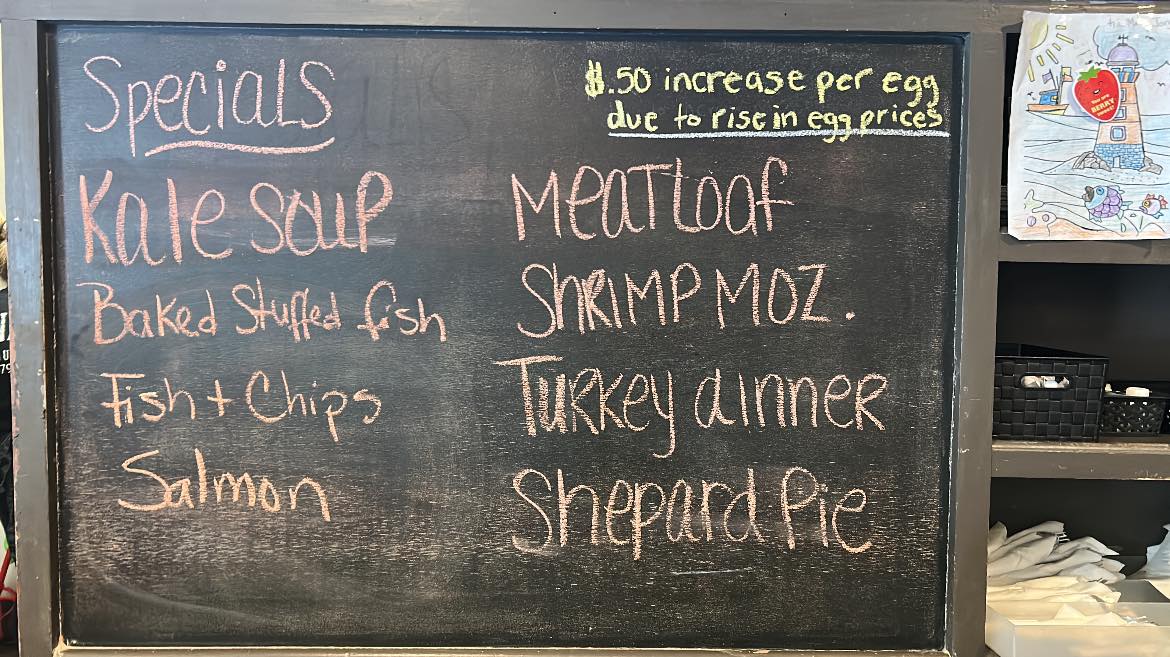 Specials
$.50 increase per egg
due to rise in egg prices
Kale Soup
Baked Stuffed fish
Fish + Chips
Salmon
Meatloaf
Shrimp Moz.
Turkey dinner
Shepard Pie
You are
BERRY